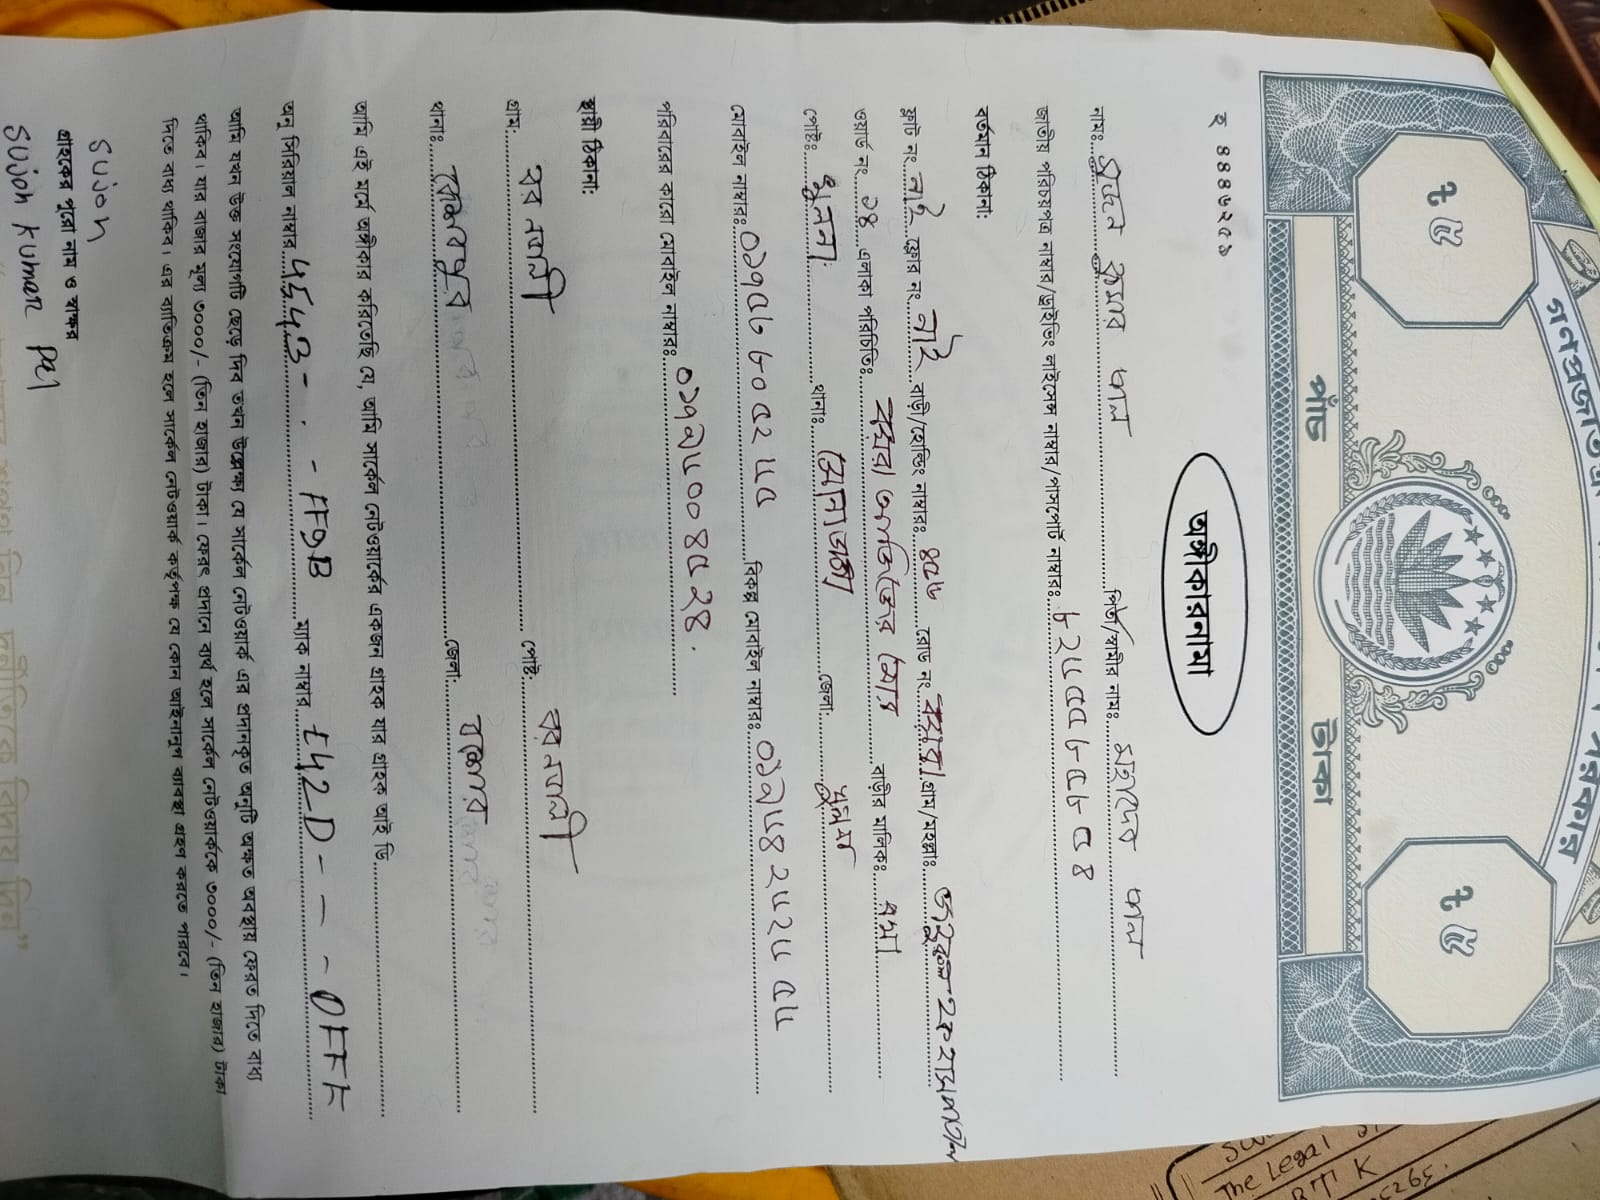 গণপ্রজাতন্ত্রী
সরকার
৳ ৫
৳ ৫
পাঁচ
টাকা
অঙ্গীকারনামা
নামঃ সুজন কুমার পাল পিতা/স্বামীর নাম: মহাদেব পাল
জাতীয় পরিচয়পত্র নাম্বার/ড্রাইভিং লাইসেন্স নাম্বার/পাসপোর্ট নাম্বার: ৮২৫৫৫৮৫৮৫৪
বর্তমান ঠিকানা:
ফ্লাট নং নাই ফ্লোর নং নাই বাড়ী/হোল্ডিং নাম্বার: ৪৫৬ রোড নং বয়রা গ্রাম/মহল্লাঃ
ওয়ার্ড নং ১৪ এলাকা পরিচিতি: বয়রা মোড় বাড়ীর মালিক:
পোষ্টঃ খুলনা থানাঃ সোনাডাঙ্গা জেলা: খুলনা
মোবাইল নাম্বার: ০১৭৫৮৮০৫২৫৫ বিকল্প মোবাইল নাম্বার: ০১৯৫৪২৫২৫৫৫
পরিবারের কারো মোবাইল নাম্বার: ০১৭৯৫০০৪৫২৪
স্থায়ী ঠিকানা:
গ্রাম: পোষ্ট:
থানাঃ কেশবপুর জেলা: যশোর
আমি এই মর্মে অঙ্গীকার করিতেছি যে, আমি সার্কেল নেটওয়ার্কের একজন গ্রাহক যার গ্রাহক আই ডি
অনু সিরিয়াল নাম্বার 4543 - - FF9B ম্যাক নাম্বার E42D - - - 0FFE
আমি যখন উক্ত সংযোগটি ছেড়ে দিব তখন সার্কেল নেটওয়ার্ক এর প্রদানকৃত অনুটি অক্ষত অবস্থায় ফেরত দিতে বাধ্য
থাকিব। যার বাজার মূল্য ৩০০০/- (তিন হাজার) টাকা। ফেরৎ প্রদানে ব্যর্থ হলে সার্কেল নেটওয়ার্ককে ৩০০০/- (তিন হাজার) টাকা
দিতে বাধ্য থাকিব। এর ব্যতিক্রম হলে সার্কেল নেটওয়ার্ক কর্তৃপক্ষ যে কোন আইনানুগ ব্যবস্থা গ্রহণ করতে পারবে।
sujon
গ্রাহকের পুরো নাম ও স্বাক্ষর
Sujon kumar pal
The Legal